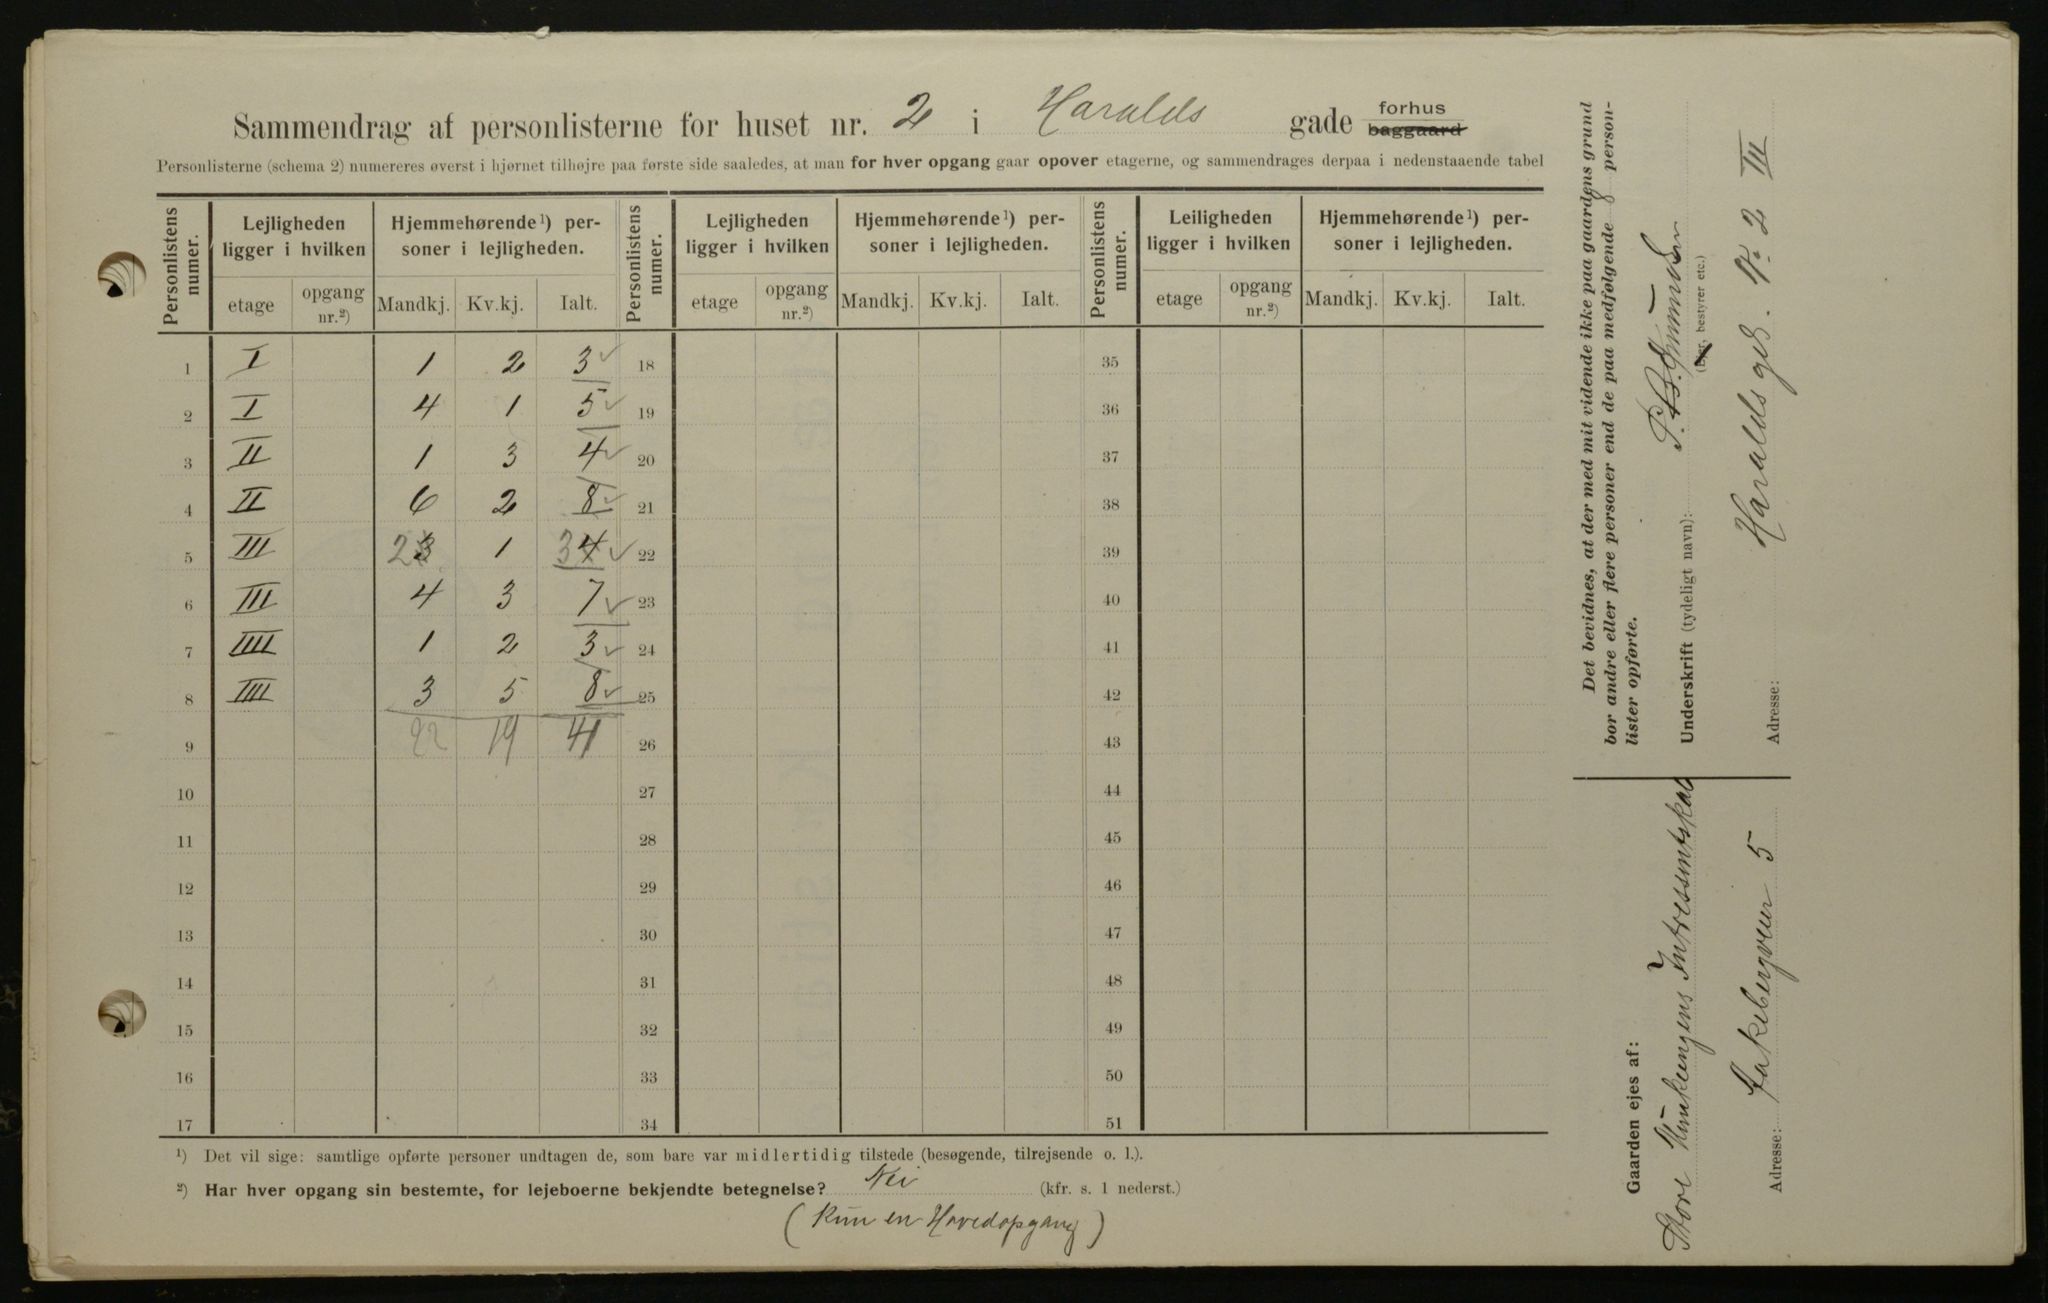 Sammendrag af personlisterne for huset nr. 2 i Haralds gade forhus baggaard
Personlisterne (schema 2) numereres øverst i hjørnet tilhøjre paa første side saaledes, at man for hver opgang gaar opover etagerne, og sammendrages derpaa i nedenstaaende tabel
Personlistens numer. Lejligheden ligger i hvilken Hjemmehørende ¹) personer i lejligheden. Personlistens numer. Lejligheden ligger i hvilken Hjemmehørende ¹) personer i lejligheden. Personlistens numer. Leiligheden ligger i hvilken Hjemmehørende ¹) personer i lejligheden.
etage opgang nr.²) Mandkj. Kv.kj. Ialt. etage opgang nr.²) Mandkj. Kv.kj. Ialt. etage opgang nr.²) Mandkj. Kv.kj. Ialt.
1 I 1 2 3 18 35
2 I 4 1 5 19 36
3 II 1 3 4 20 37
4 II 6 2 8 21 38
5 III 2 3 1 3 4 22 39
6 III 4 3 7 23 40
7 IIII 1 2 3 24 41
8 IIII 3 5 8 25 42
9 22 19 41 26 43
10 27 44
11 28 45
12 29 46
13 30 47
14 31 48
15 32 49
16 33 50
17 34 51
¹) Det vil sige: samtlige opførte personer undtagen de, som bare var midlertidig tilstede (besøgende, tilrejsende o. l.).
²) Har hver opgang sin bestemte, for lejeboerne bekjendte betegnelse? Nei (kfr. s. 1 nederst.)
(kun en Hovedopgang)
Det bevidnes, at der med mit vidende ikke paa gaardens grund
bor andre eller flere personer end de paa medfølgende 8 person-
lister opførte.
Underskrift (tydeligt navn):
(Ejer, bestyrer etc.)
Adresse: Haralds gd. No 2 III
Gaarden ejes af:
Store Intressentskab
Adresse: Aakebergveien 5